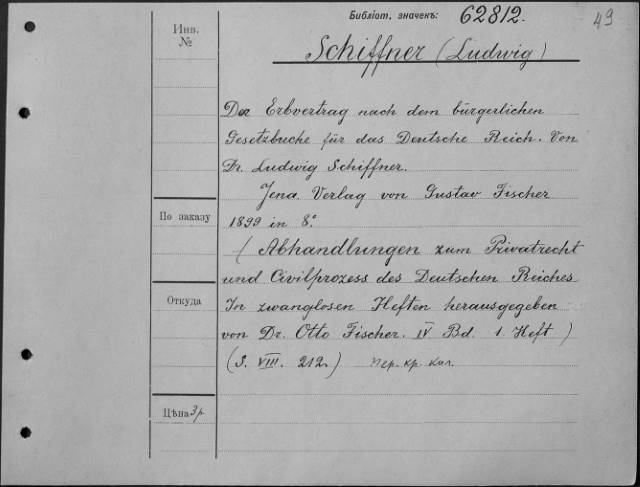 Библіот. значекъ: 62812.
49
Инв.
№
Schiffner (Ludwig)
Der Erbvertrag nach dem bürgerlichen
Gesetzbuche für das Deutsche Reich. Von
Dr. Ludwig Schiffner.
Jena. Verlag von Gustav Fischer
По заказу
1899 in 8.º
(Abhandlungen zum Privatrecht
und Civilprozess des Deutschen Reiches
Откуда
In zwanglosen Heften herausgegeben
von Dr. Otto Fischer. IV Bd. 1. Heft)
(S. VIII. 212.) пер. кр. кал.
Цѣна 3 р